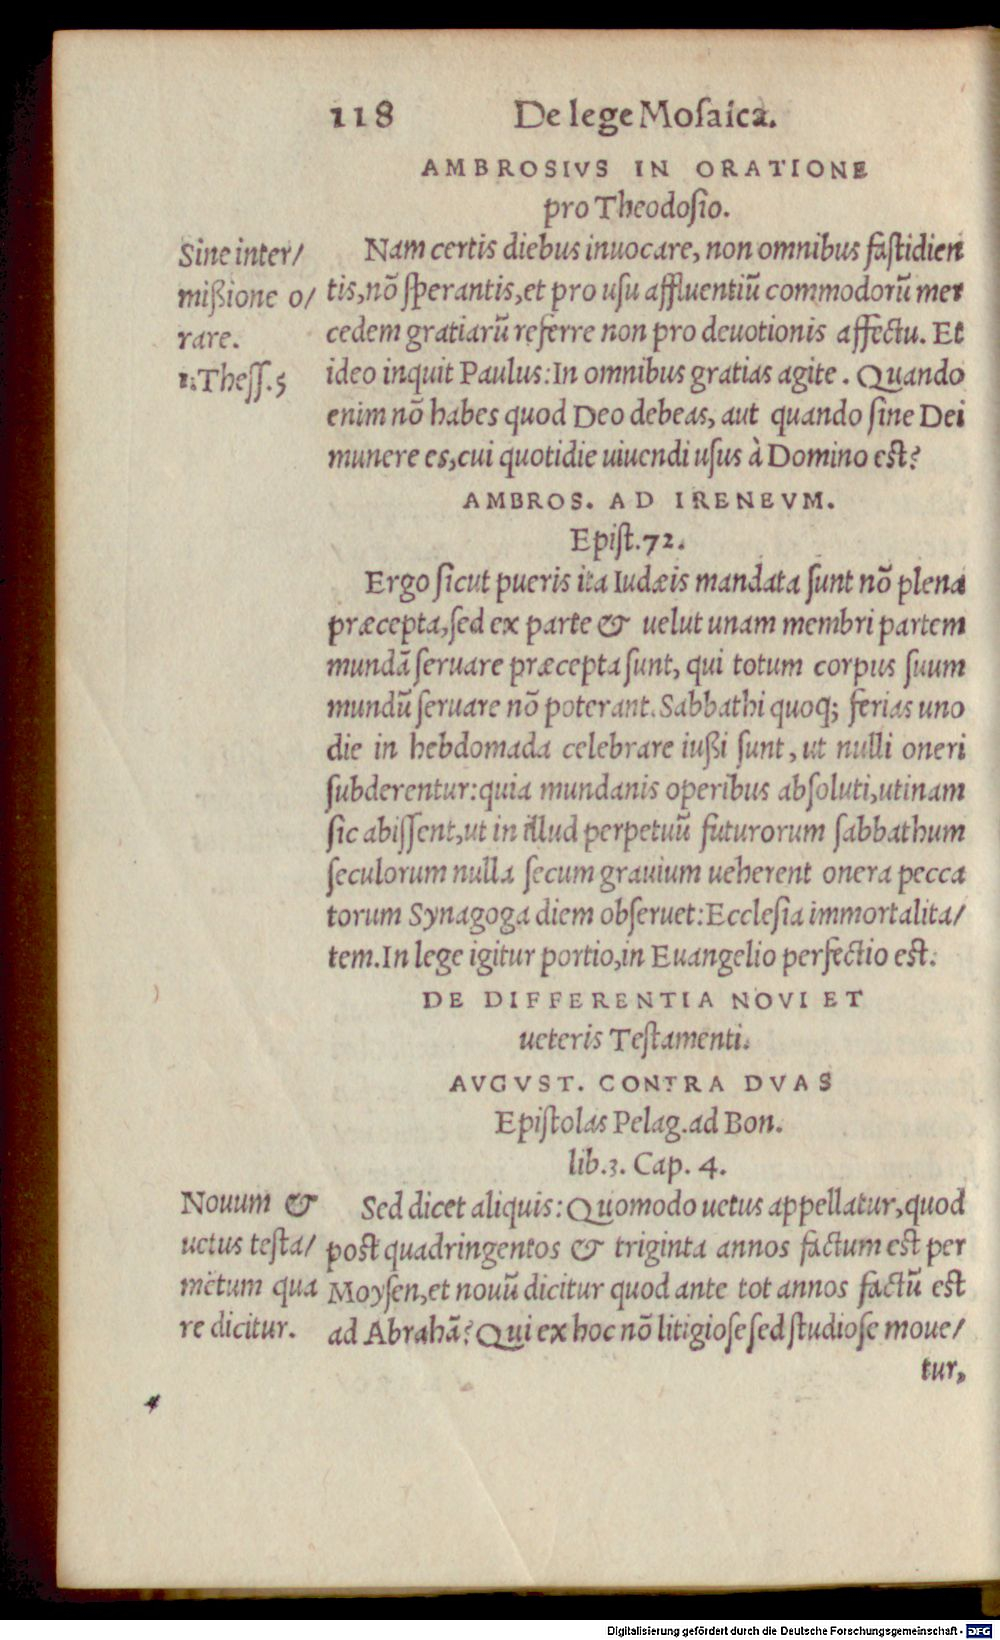 118 De lege Mosaica.
AMBROSIVS IN ORATIONE
pro Theodosio.
Sine inter/
mißione o/
rare.
1. Thess. 5
Nam certis diebus inuocare, non omnibus fastidien
tis, nõ sperantis, et pro usu affluentiũ commodorũ mer
cedem gratiarũ referre non pro deuotionis affectu. Et
ideo inquit Paulus: In omnibus gratias agite. Quando
enim nõ habes quod Deo debeas, aut quando sine Dei
munere es, cui quotidie uiuendi usus à Domino est?
AMBROS. AD IRENEVM.
Epist. 72.
Ergo sicut pueris ita Iudæis mandata sunt nõ plena
præcepta, sed ex parte & uelut unam membri partem
mundã seruare præcepta sunt, qui totum corpus suum
mundũ seruare nõ poterant. Sabbathi quoq; ferias uno
die in hebdomada celebrare iußi sunt, ut nulli oneri
subderentur: quia mundanis operibus absoluti, utinam
sic abissent, ut in illud perpetuũ futurorum sabbathum
seculorum nulla secum grauium ueherent onera pecca
torum Synagoga diem obseruet: Ecclesia immortalita/
tem. In lege igitur portio, in Euangelio perfectio est.
DE DIFFERENTIA NOVI ET
ueteris Testamenti.
AVGVST. CONTRA DVAS
Epistolas Pelag. ad Bon.
lib. 3. Cap. 4.
Nouum &
uetus testa/
mẽtum qua
re dicitur.
Sed dicet aliquis: Quomodo uetus appellatur, quod
post quadringentos & triginta annos factum est per
Moysen, et nouũ dicitur quod ante tot annos factũ est
ad Abrahã? Qui ex hoc nõ litigiose sed studiose moue/
tur,
4
Digitalisierung gefördert durch die Deutsche Forschungsgemeinschaft - DFG